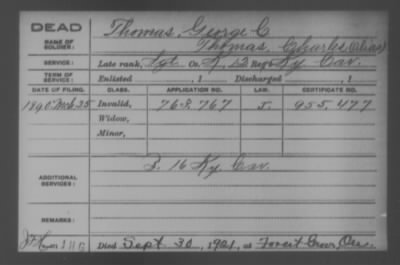 DEAD
NAME OF SOLDIER:
Thomas, George C
Thomas, Charles (Alias)
SERVICE:
Late rank, Sgt Co. K, 12 Reg't Ky Cav.
TERM OF SERVICE:
Enlisted , 1 Discharged , 1
DATE OF FILING. CLASS. APPLICATION NO. LAW. CERTIFICATE NO.
1890. Mch. 25 Invalid, 768.767 J. 955.477
Widow,
Minor,
ADDITIONAL SERVICES:
B. 16 Ky Cav.
REMARKS:
Died Sept 30, 1921, at Forest Grove, Ore.